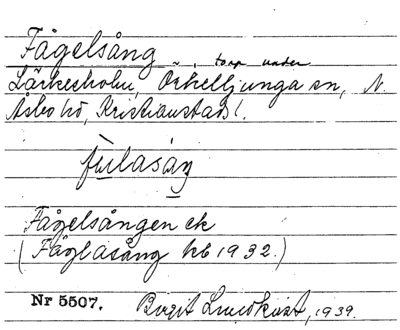 Fågelsång, torp under
Lärkesholm, Örkelljunga sn, N.
Åsbo hd, Kristianstads l.
fu̲lasáŋ
Fågelsången ek
(Fåglasång kb 1932.)
Nr 5507. Birgit Lundkvist, 1939.